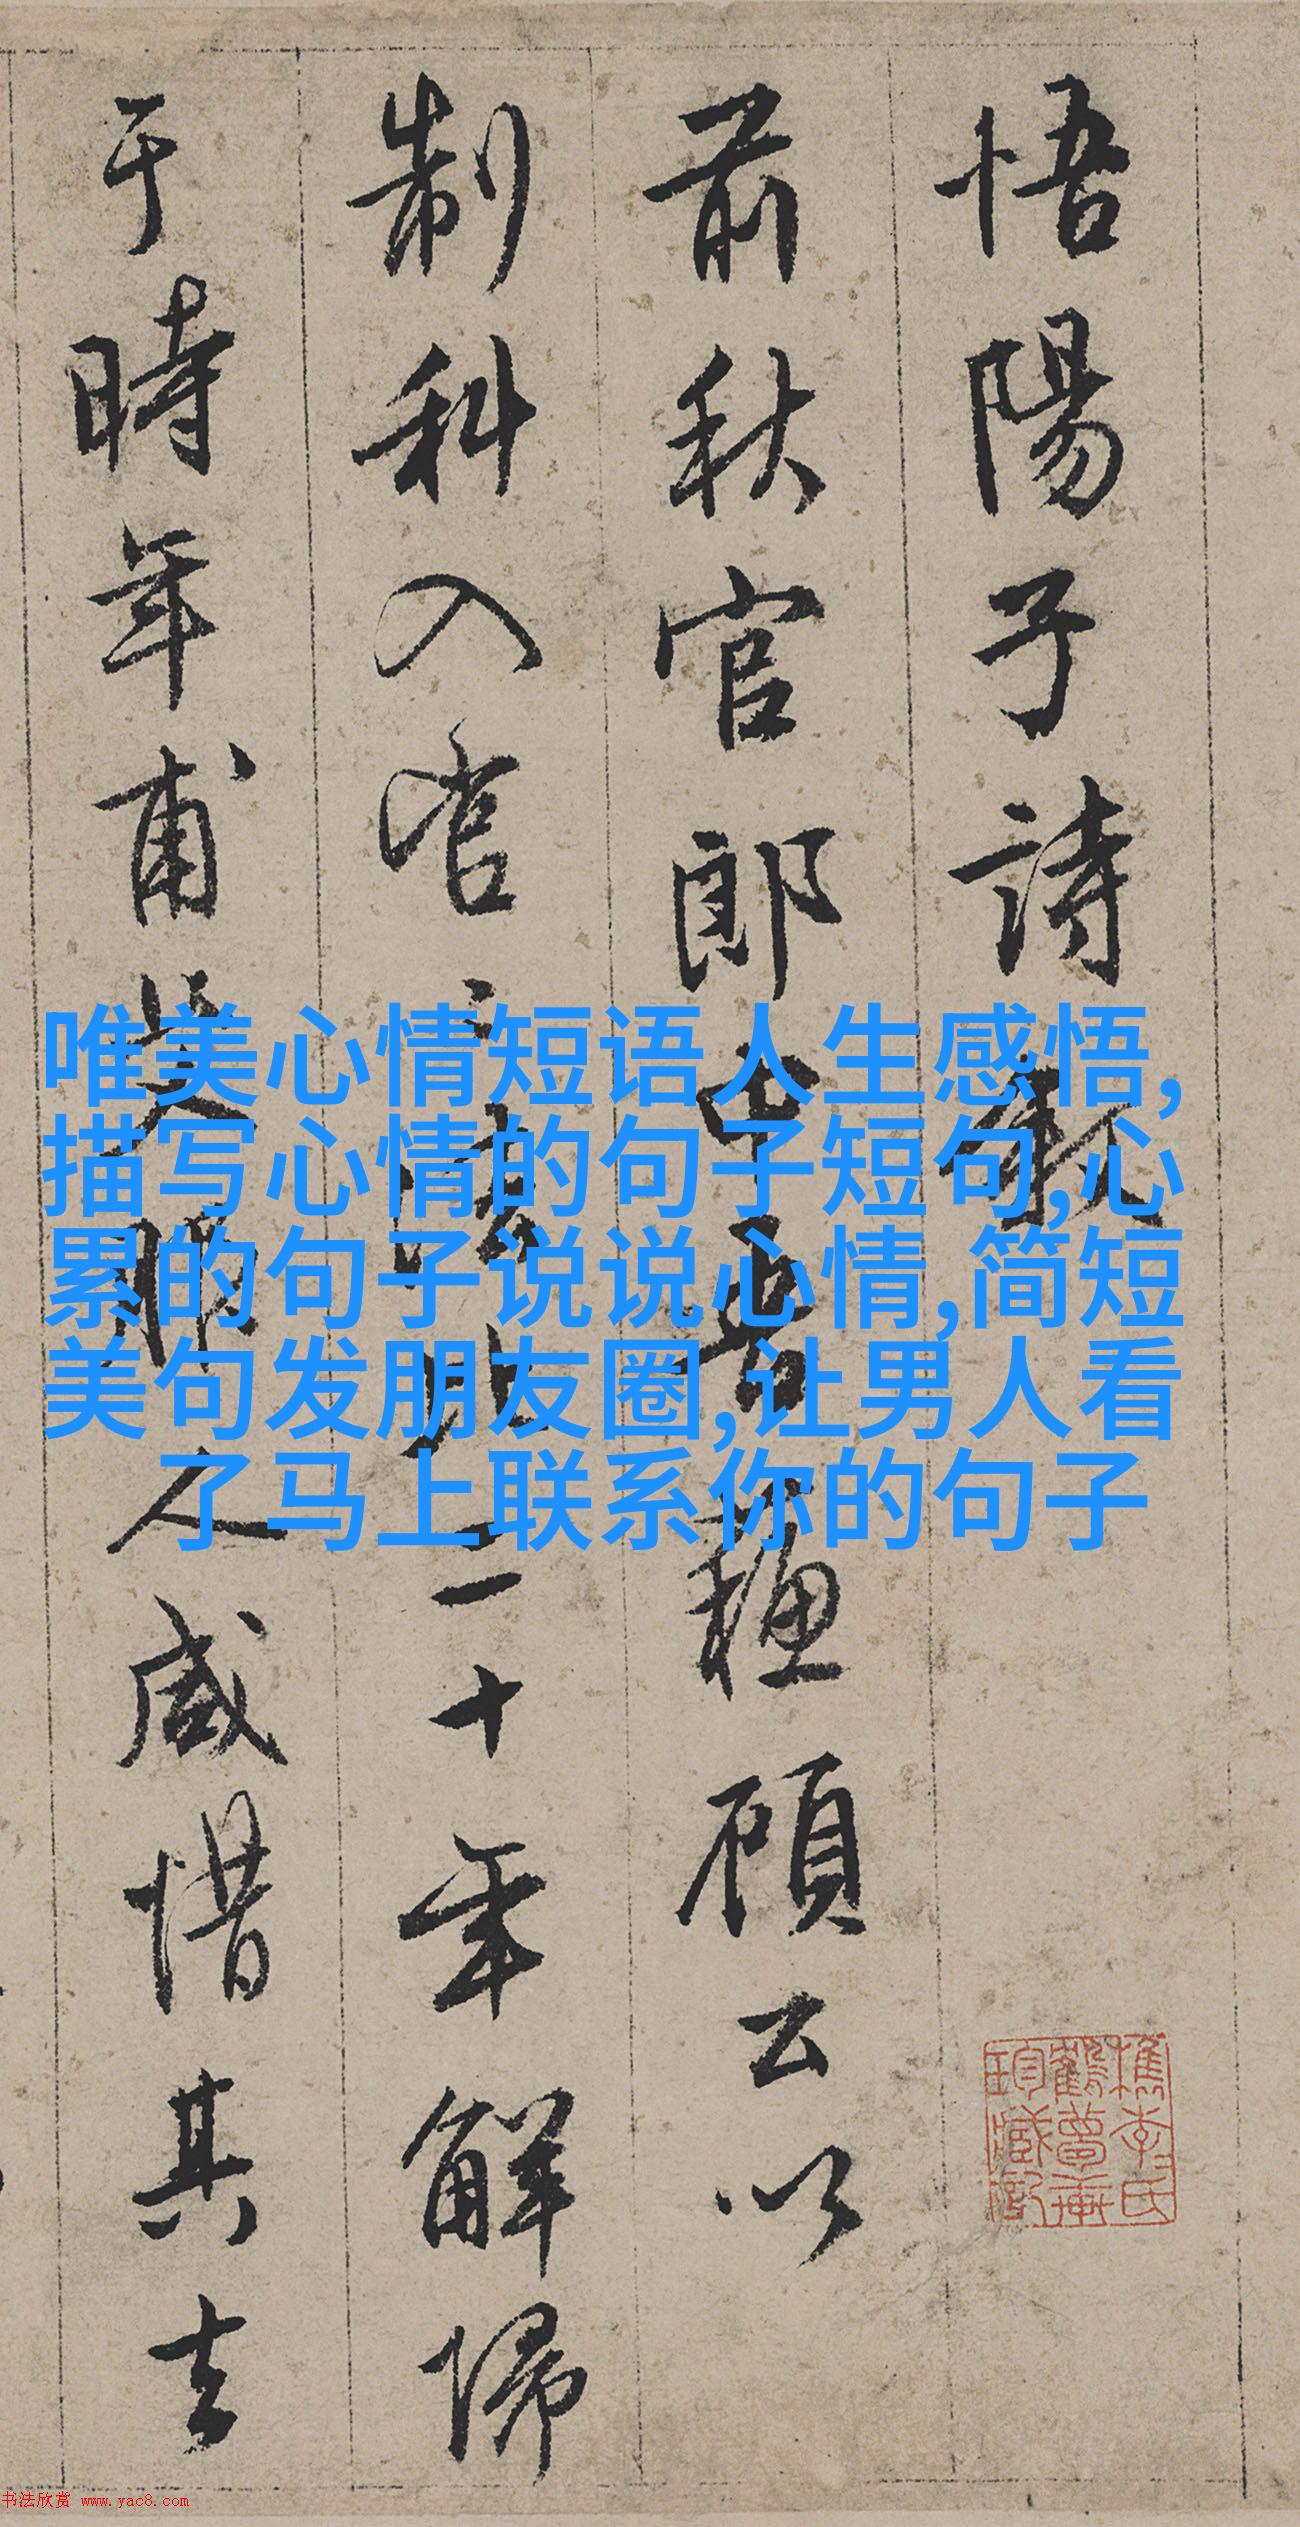 悟陽子詩敘
前秋官郎中晉顧公以
制科入二十年解歸
于時年甫人咸惜其去
唯美心情短语人生感悟,
描写心情的句子短句,心
累的句子说说心情,简短
美句发朋友圈,让男人看
了马上联系你的句子
檇李氏
鶴夢軒
珍藏記
书法欣赏 www.yac8.com